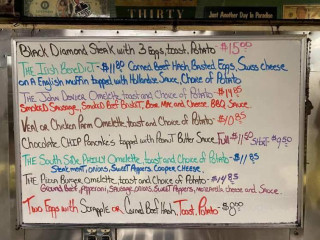 Just Another Day in Paradise
Black Diamond Steak with 3 Eggs, toast, Potato $15.00
THE Irish BeneDict - $11.80 Corned Beef Hash, Poached Eggs, Swiss cheese
on A English muffin topped with Hollandaise Sauce, Choice of Potato
THE John Denver Omelette, toast and Choice of Potato $14.95
Smoked Sausage, Smoked Brisket, Bone, Mac and Cheese, BBQ Sauce
Veal or Chicken Parm Omelette, toast and Choice of Potato $10.85
Chocolate CHIP Pancakes topped with Peanut Butter Sauce Full $11.50 Short $9.50
THE South Side Philly Omelette, toast and Choice of Potato - $11.85
Steak meat, onions, Sweet Peppers Cooper Cheese
THE Pizza Burger Omelette, toast and Choice of Potato - $14.85
Ground Beef, Pepperoni, Sausage, onions, Sweet Peppers, mozzarella cheese and Sauce
Two Eggs with Scrapple or Corned Beef Hash, Toast, Potato - $8.00